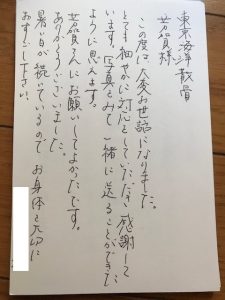 東京海洋散骨
芳賀様
この度は、大変お世話になりました。
とても細やかに対応をしていただき感謝して
います。写真をみて、一緒に送ることができた
ように思えます。
芳賀さんにお願いしてよかったです。
ありがとうございました。
暑い日が続いているので、お身体を大切に
おすごし下さい。